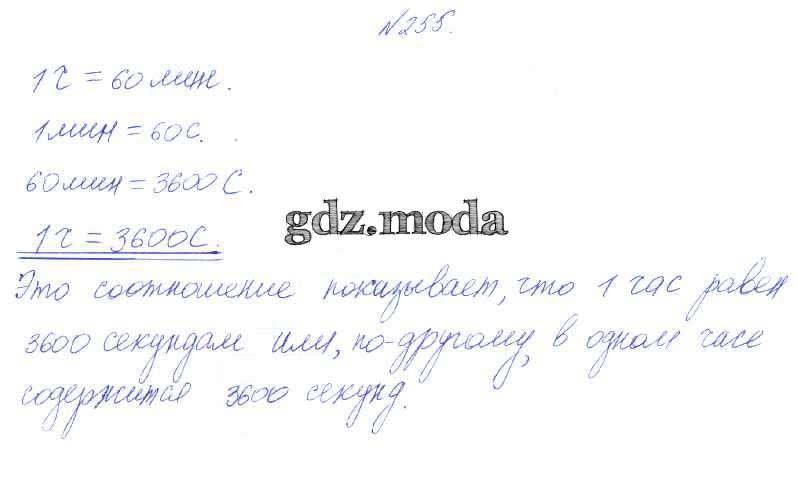 №255.
1ч = 60 мин.
1 мин = 60 с.
60 мин = 3600 С.
gdz.moda
1ч = 3600С.
Это соотношение показывает, что 1 час равен
3600 секундам или, по-другому, в одном часе
содержится 3600 секунд.